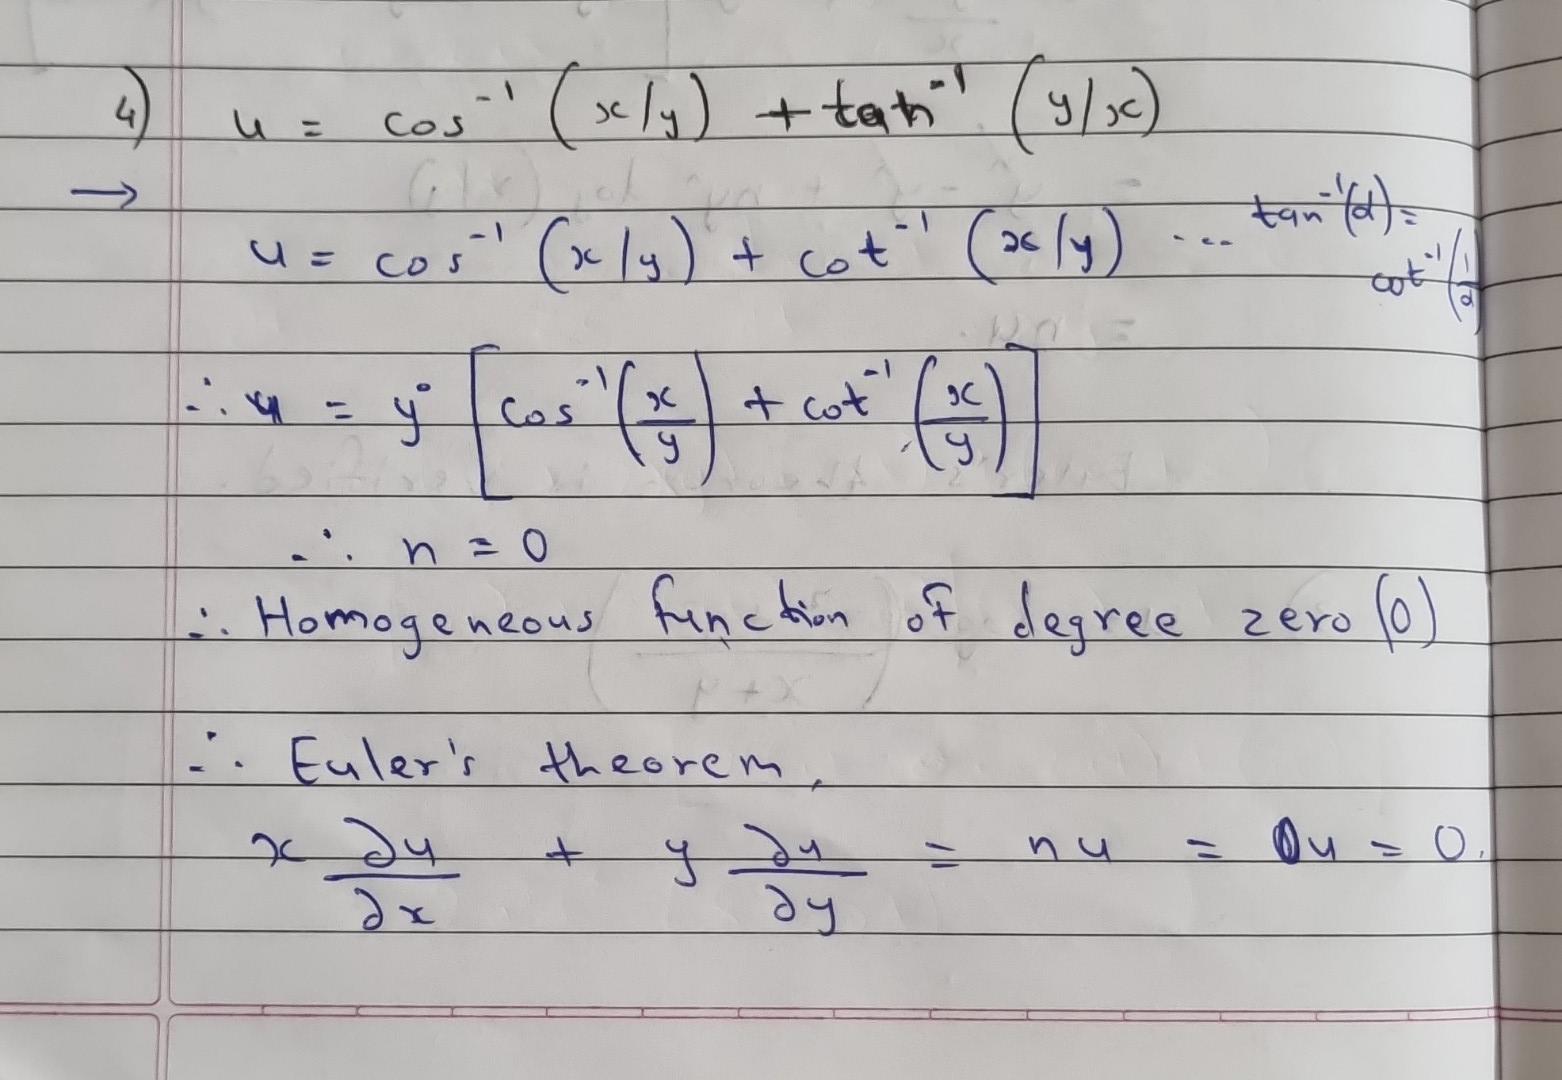 4) u = cos⁻¹ (x/y) + tan⁻¹ (y/x)
→
u = cos⁻¹ (x/y) + cot⁻¹ (x/y) ... tan⁻¹(d) = cot⁻¹(1/d
∴ u = y° [cos⁻¹(x/y) + cot⁻¹(x/y)]
∴ n = 0
∴ Homogeneous function of degree zero (0)
∴ Euler's theorem,
x ∂u/∂x + y ∂u/∂y = nu = 0u = 0.